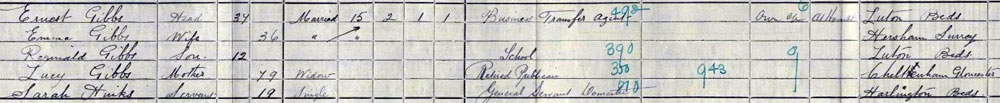 Ernest Gibbs Head 34 Married 15 2 1 1 Business Transfer Agent 498 Own a/c 6 At Home Luton Beds
Emma Gibbs Wife 36 " " Hersham Surrey
Reginald Gibbs Son 12 School 390 9 Luton Beds
Lucy Gibbs Mother 79 Widow Retired Publican 350 943 Cheltenham Gloucester
Sarah Hinks Servant 19 Single General Servant Domestic Harlington Beds